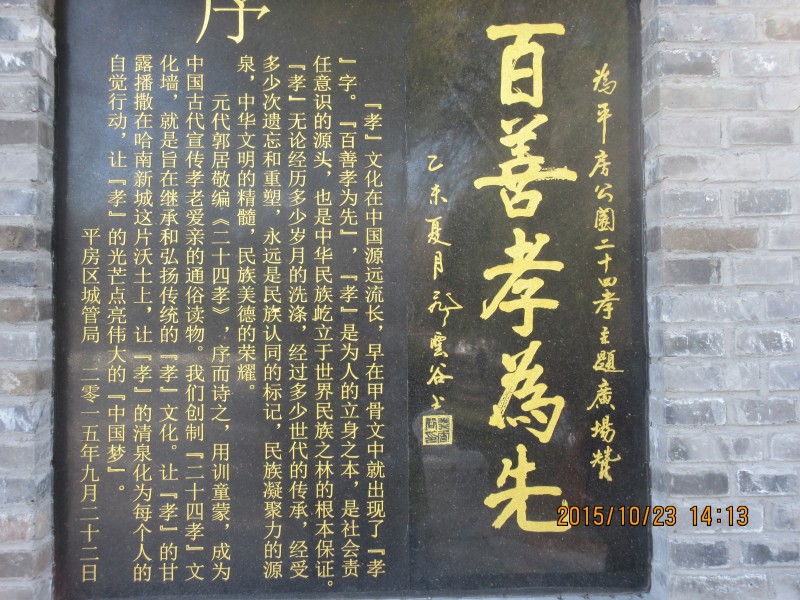 為平房公園二十四孝主題廣場
百善孝為先
乙未夏月 雲谷书
序
『孝』文化在中国源远流长，早在甲骨文中就出现了『孝
』字。『百善孝为先』，『孝』是为人的立身之本，是社会责
任意识的源头，也是中华民族屹立于世界民族之林的根本保证。
『孝』无论经历多少岁月的洗涤，经过多少世代的传承，经受
多少次遗忘和重塑，永远是民族认同的标记，民族凝聚力的源
泉，中华文明的精髓，民族美德的荣耀。
元代郭居敬编《二十四孝》，序而诗之，用训童蒙，成为
中国古代宣传孝老爱亲的通俗读物。我们创制『二十四孝』文
化墙，就是旨在继承和弘扬传统的『孝』文化。让『孝』的甘
露播撒在哈南新城这片沃土上，让『孝』的清泉化为每个人的
自觉行动，让『孝』的光芒点亮伟大的『中国梦』。
平房区城管局 二零一五年九月二十二日
2015/10/23 14:13